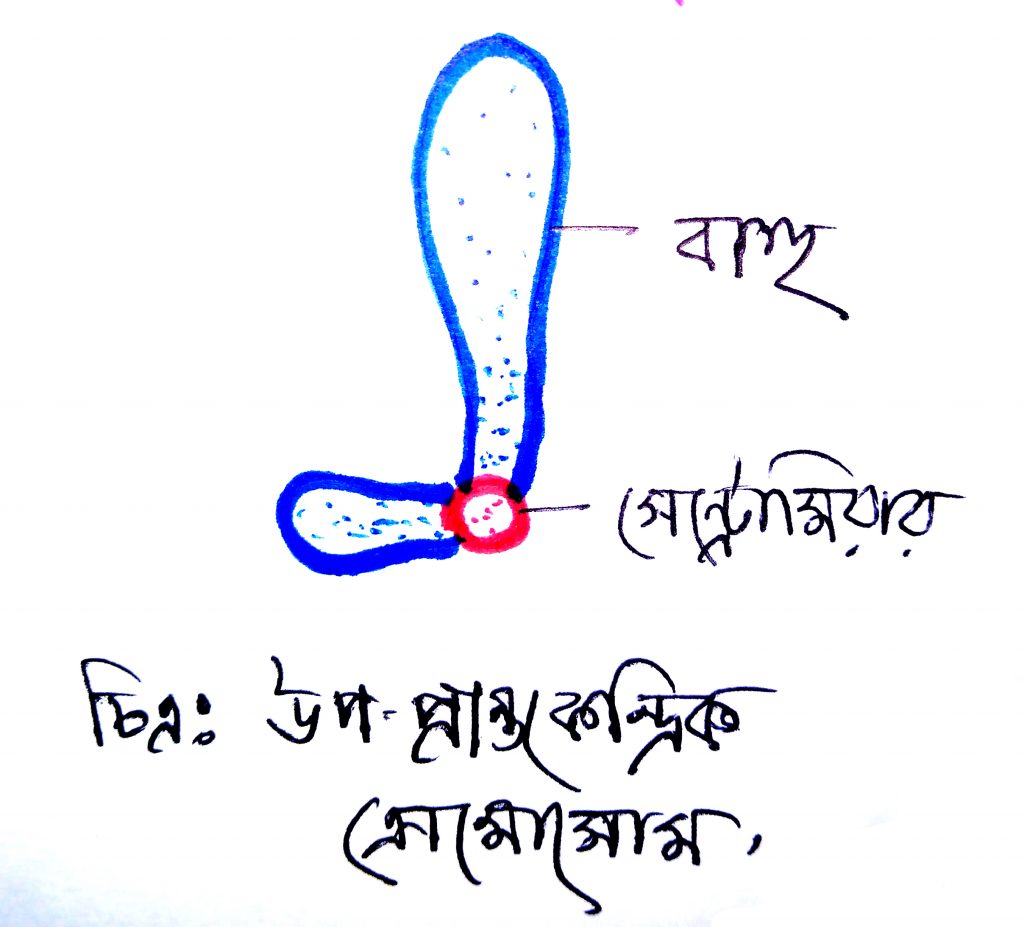 বাহু
সেন্ট্রোমিয়ার
চিত্র: উপ-প্রান্তকেন্দ্রিক
ক্রোমোসোম.